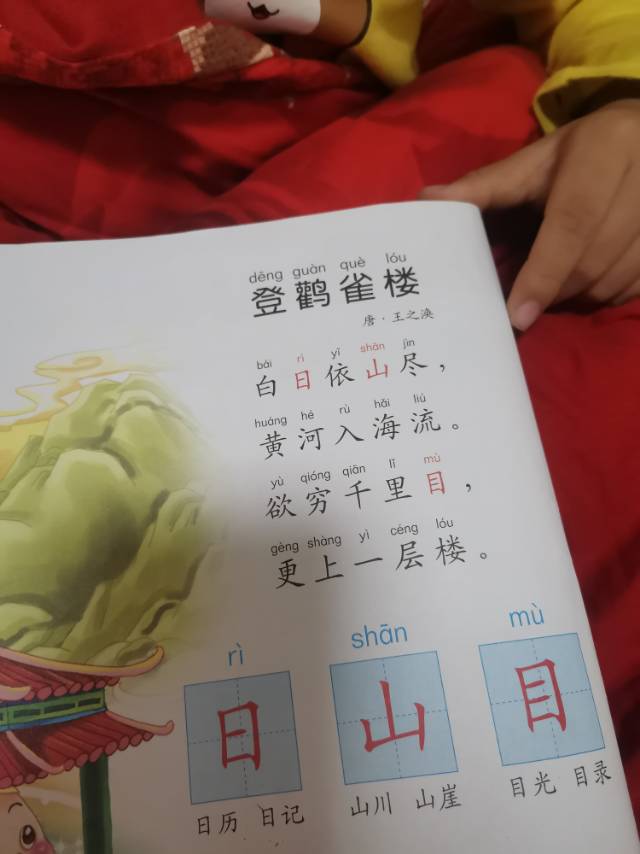 dēng guàn què lóu
登鹳雀楼
唐·王之涣
bái rì yī shān jìn
白日依山尽，
huáng hé rù hǎi liú
黄河入海流。
yù qióng qiān lǐ mù
欲穷千里目，
gèng shàng yì céng lóu
更上一层楼。
rì shān mù
日 山 目
日历 日记 山川 山崖 目光 目录